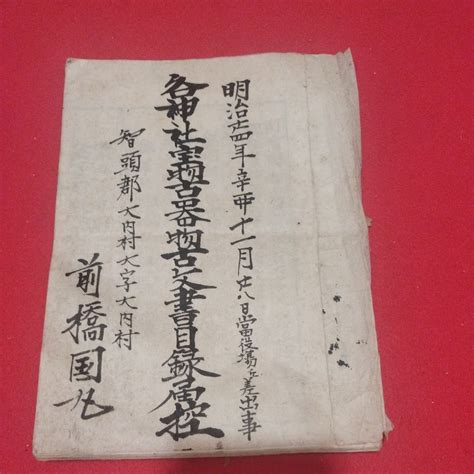 明治廿四年辛卯十一月廿八日當役場ヘ差出事
各神社宝物古器物古文書目録届控
智頭郡大内村大字大内村
前橋国九